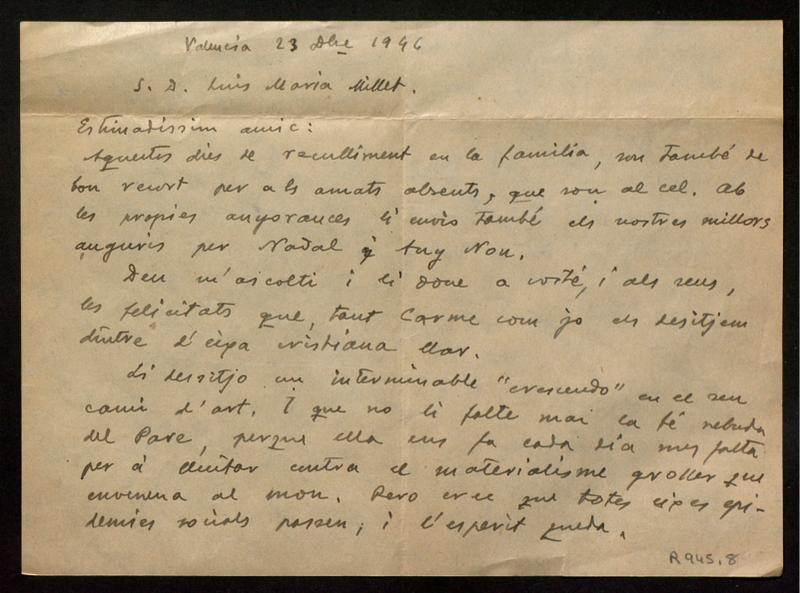 Valencia 23 Dbre 1946
S. D. Luis Maria Millet.
Estimadíssim amic:
Aquestos dies de reculliment en la familia, son també de
bon recort per als amats absents, que son al cel. Ab
les propies anyorances li envio també els nostres millors
auguris per Nadal y Any Nou.
Deu m'ascolti i li done a vosté, i als seus,
les felicitats que, tant Carme com jo els desitjem
dintre d'eixa cristiana llar.
Li dessitjo un interminable "crescendo" en el seu
cami d'art. I que no li falte mai la fé rebuda
del Pare, perque ella ens fa cada dia mes falta
per á lluitar contra el materialisme groller que
envenena al mon. Pero crec que totes eixes epi-
demies socials passen; i l'esperit queda.
R 945.8